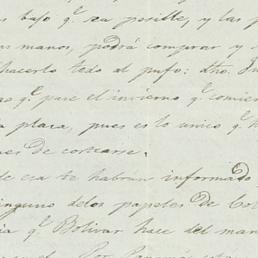 bajo q.e sea posible, y las p
manos, podrá comprar y
hacerlo todo al pufo: dho. Ju
q.e pase el invierno q.e comien
plaza, pues es lo unico q.e h
de cortarse.
de esa te habrán informado
ninguno delos papeles de Col
q.e Bolivar hace del man
Por Panamá